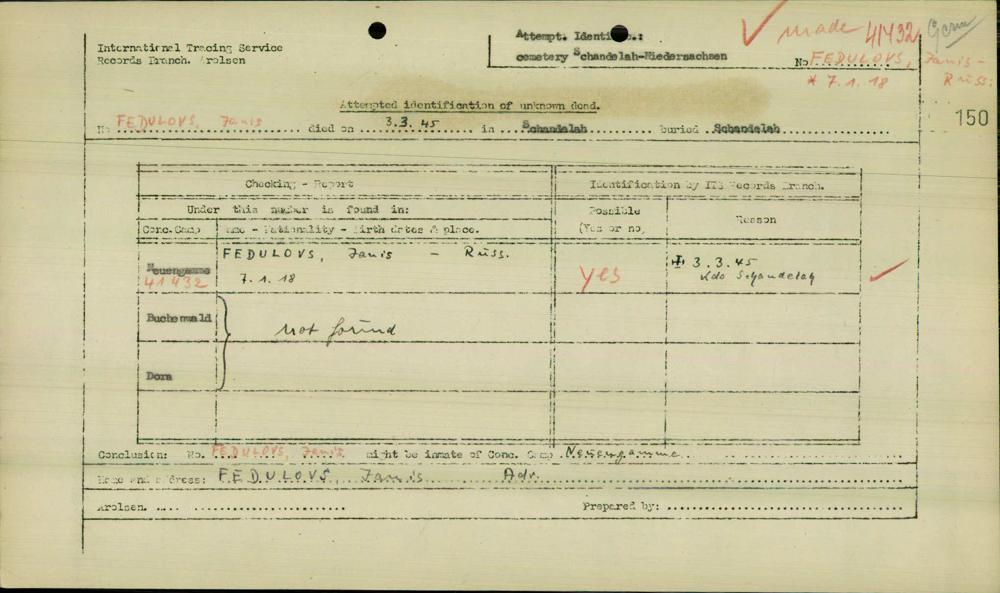 International Tracing Service
Records Branch. Arolsen
Attempt. Identi :
cemetery Schandelah-Niedersachsen
made 41432 Germ
No FEDULOVS, Janis -
* 7.1.18 Russ.
150
Attempted identification of unknown dead.
No FEDULOVS, Janis died on 3.3.45 in Schandelah buried Schandelah
Checking - Report Identification by ITS Records Branch.
Under this number is found in: Possible Reason
Conc.Camp Name - Nationality - Birth dates & place. (Yes or no)
Neuengamme FEDULOVS, Janis - Russ. yes 3.3.45
41432 7.1.18 Kdo Schandelah
Buchenwald not found
Dora
Conclusion: No. FEDULOVS, Janis might be inmate of Conc. Camp Neuengamme
Name and address: FEDULOVS, Janis Adr.
Arolsen. Prepared by: